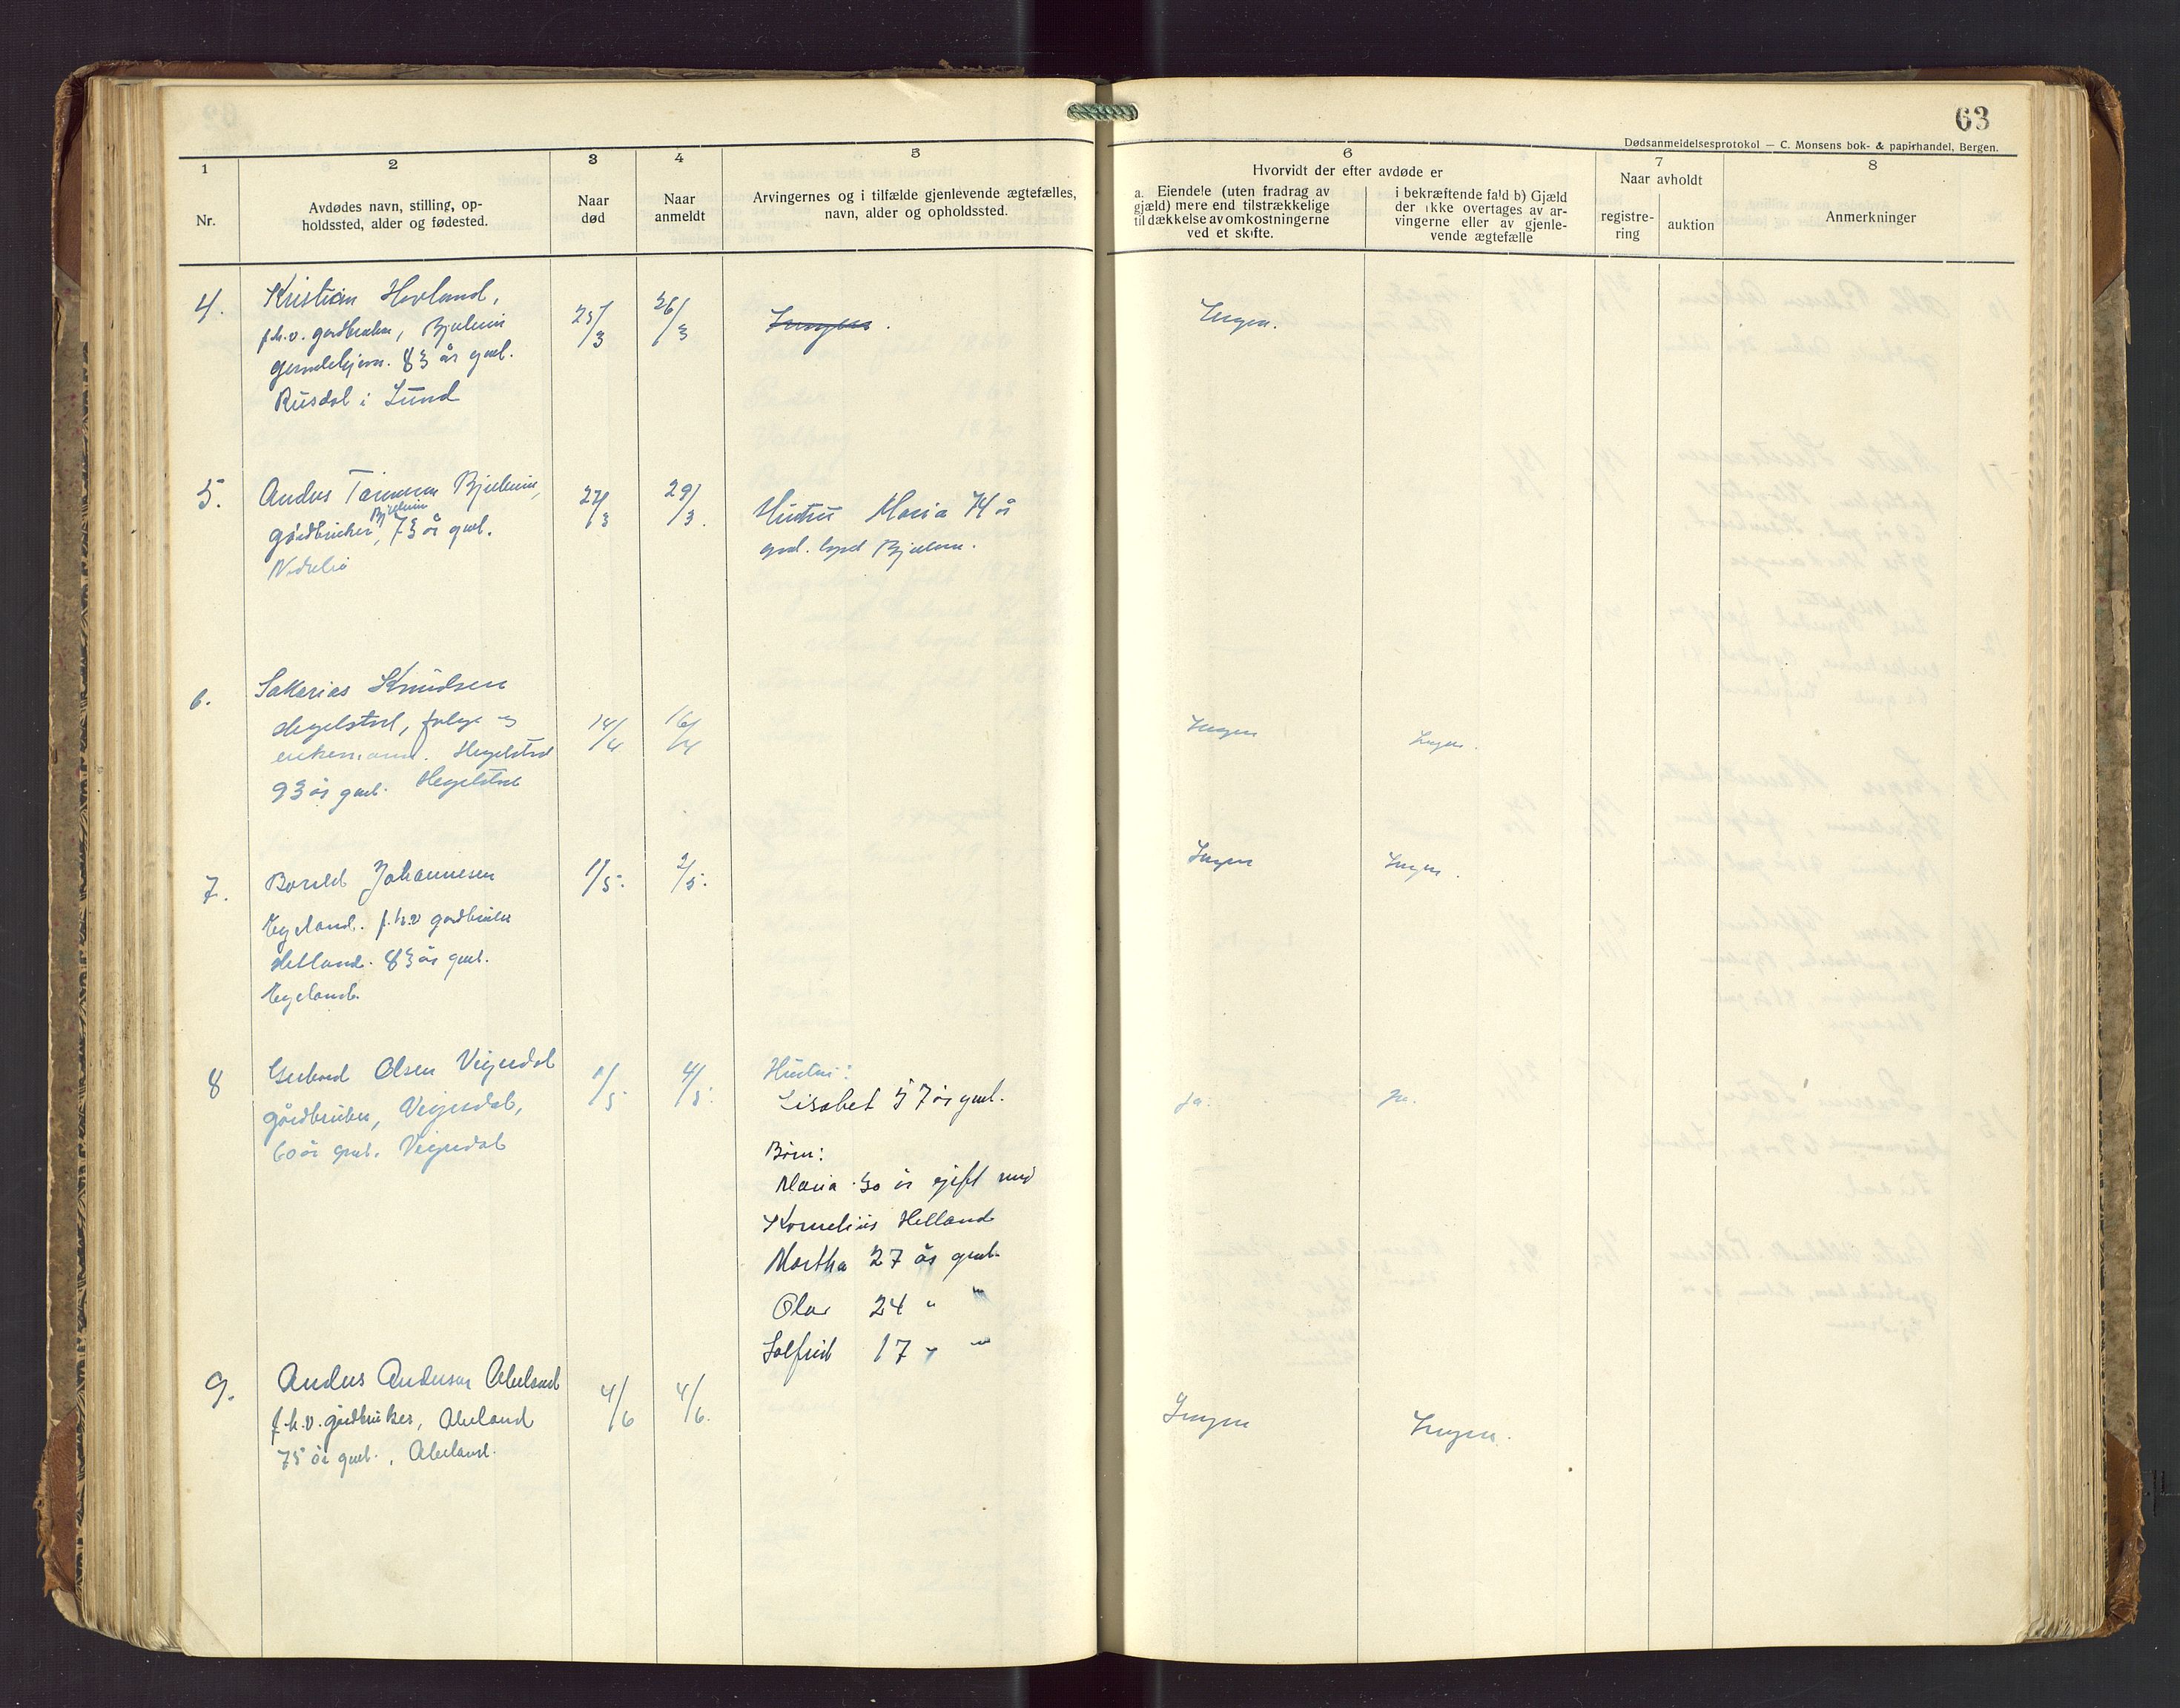 63
Dødsanmeldelsesprotokol — C. Monsens bok- & papirhandel, Bergen.
1
Nr.
2
Avdødes navn, stilling, op-
holdssted, alder og fødested.
3
Naar
død
4
Naar
anmeldt
5
Arvingernes og i tilfælde gjenlevende ægtefælles,
navn, alder og opholdssted.
6
Hvorvidt der efter avdøde er
a. Eiendele (uten fradrag av
gjæld) mere end tilstrækkelige
til dækkelse av omkostningerne
ved et skifte.
i bekræftende fald b) Gjæld
der ikke overtages av ar-
vingerne eller av gjenle-
vende ægtefælle
7
Naar avholdt
registre-
ring
auktion
8
Anmerkninger
4.
Kristian Hovland,
f.h.v. gårdbruker, Bjerkreim
gamlehjem. 83 år gml.
Rusdal i Lund
25/3
26/3
Ingen.
Ingen.
5.
Bjerkreim,
gårdbruker, Bjerkreim 73 år gml.
27/3
29/3.
Hustru Maria 74 år
gml. bopel Bjerkreim.
6.
Sakarias Knudsen
Hegelstad, følge og
enkemann. Hegelstad
93 år gml. Hegelstad
14/4
16/4
Ingen
Ingen.
7.
Johannesen
Egeland. f.h.v gårdbruker
Helland. 83 år gml.
Egeland.
1/5.
2/5.
Ingen
Ingen.
8
Olsen Veisdal
gårdbruker, Veisdal,
60 år gml. Veisdal
1/5
4/5.
Hustru:
Lisabet 57 år gml.
Børn:
Maria 30 år gift med
Kornelius Helland
Martha 27 år gml.
Olav 24 " "
Solfrid 17 " "
Ja.
Ja.
9.
Anders Andersen Åbeland
f.h.v. gårdbruker, Åbeland
75 år gml., Åbeland.
4/6
4/6.
Ingen
Ingen.